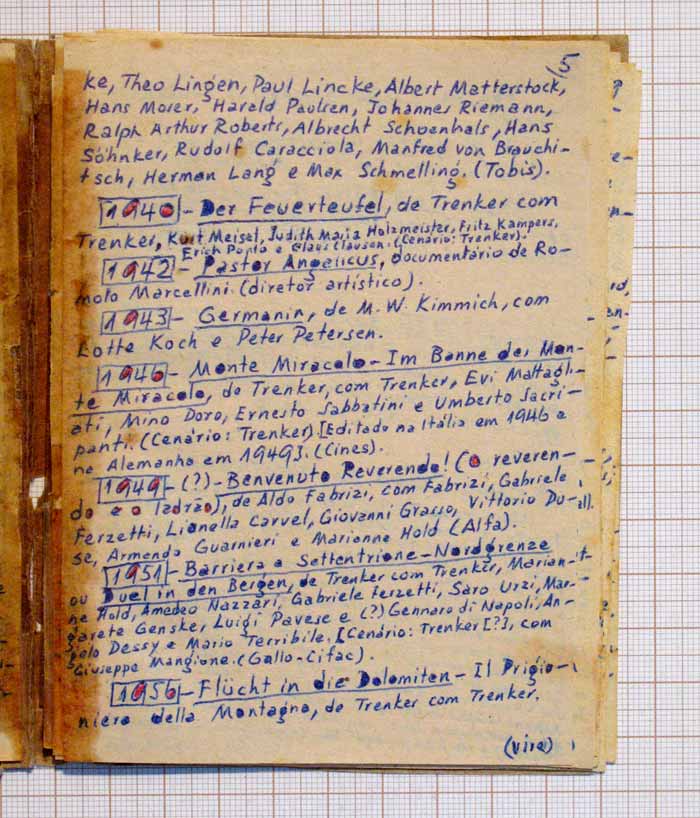 5
ke, Theo Lingen, Paul Lincke, Albert Matterstock,
Hans Moser, Harald Paulsen, Johannes Riemann,
Ralph Arthur Roberts, Albrecht Schoenhals, Hans
Söhnker, Rudolf Caracciola, Manfred von Brauchi-
tsch, Herman Lang e Max Schmelling. (Tobis).
1940 - Der Feuerteufel, de Trenker com
Trenker, Kurt Meisel, Judith Maria Holzmeister, Fritz Kampers,
Erich Ponto e Claus Clausen. (Cenário: Trenker).
1942 - Pastor Angelicus, documentário de Ro-
molo Marcellini. (diretor artístico).
1943 - Germanin, de M. W. Kimmich, com
Lotte Koch e Peter Petersen.
1946 - Monte Miracolo - Im Banne des Mon-
te Miracolo, de Trenker, com Trenker, Evi Maltagli-
ati, Mino Doro, Ernesto Sabbatini e Umberto Sacri-
panti. (Cenário: Trenker) [Editado na Itália em 1946 e
na Alemanha em 1949]. (Cines).
1949 - (?) - Benvenuto Reverendo! (O reveren-
do e o ladrão), de Aldo Fabrizi, com Fabrizi, Gabriele
Ferzetti, Lianella Carvel, Giovanni Grasso, Vittorio Du-
se, Armando Guarnieri e Marianne Hold (Alfa).
1951 - Barriera a Settentrione - Nordgrenze
ou Duel in den Bergen, de Trenker com Trenker, Marian-
ne Hold, Amedeo Nazzari, Gabriele Ferzetti, Saro Urzì, Mar-
garete Genske, Luigi Pavese e (?) Gennaro di Napoli, An-
gelo Dessy e Mario Terribile. [Cenário: Trenker [?], com
Giuseppe Mangione. (Gallo-Cifac).
1956 - Flücht in die Dolomiten - Il Prigio-
niero della Montagna, de Trenker com Trenker.
(vire)